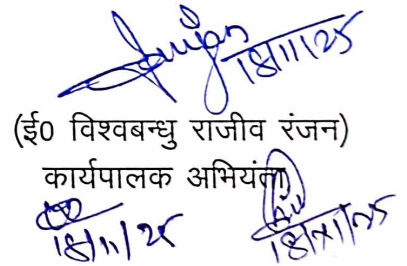 18/11/25
(ई० विश्वबन्धु राजीव रंजन)
कार्यपालक अभियंता
18/11/25
18/11/25